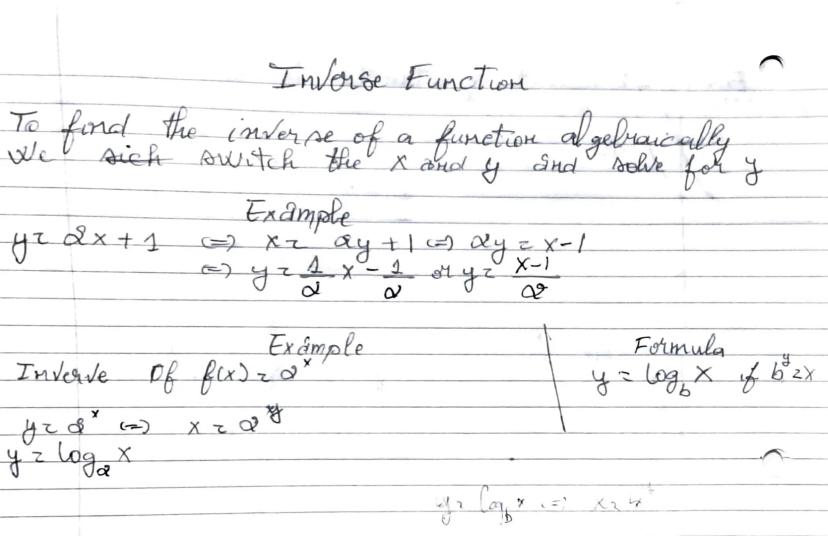 Inverse Function
To find the inverse of a function algebraically
We sich switch the x and y and solve for y
Example
y = 2x + 1 <=> x = 2y + 1 <=> 2y = x - 1
<=> y = 1/2 x - 1/2 or y = (x-1)/2
Example
Inverve Of f(x) = 2^x
y = 2^x <=> x = 2^y
y = log_2 x
Formula
y = log_b x if b^y = x
y = log_b x <=>